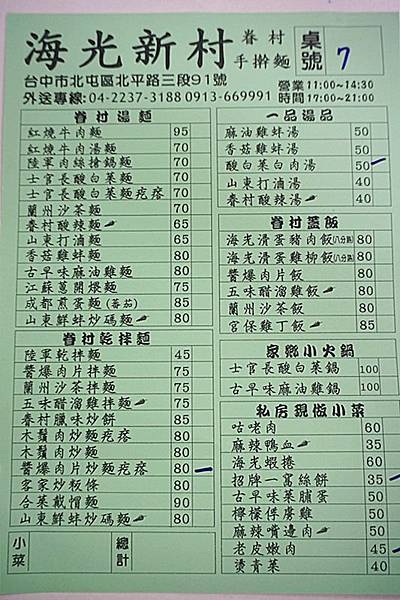 海光新村 眷村手擀麵 桌號 7
台中市北屯區北平路三段91號
外送專線:04-2237-3188 0913-669991
營業時間 11:00~14:30
17:00~21:00
眷村湯麵
紅燒牛肉麵 95
紅燒肉湯麵 70
陸軍肉絲搶鍋麵 70
士官長酸白菜麵 70
士官長酸白菜麵疙瘩 70
蘭州沙茶麵 70
眷村酸辣麵 65
山東打滷麵 65
香菇雞蚌麵 80
古早味麻油雞麵 80
江蘇蔥開煨麵 75
成都煎蛋麵(蕃茄) 85
山東鮮蚌炒碼麵 80
眷村乾拌麵
陸軍乾拌麵 45
醬爆肉片拌麵 75
蘭州沙茶拌麵 75
五味醋溜雞拌麵 75
眷村臘味炒餅 85
木鬚肉炒麵疙瘩 80
木鬚肉炒麵 80
醬爆肉片炒麵疙瘩 80
客家炒粄條 80
合菜戴帽麵 90
山東鮮蚌炒碼麵 80
小菜 總計
一品湯品
麻油雞蚌湯 50
香菇雞蚌湯 50
酸白菜白肉湯 50
山東打滷湯 40
眷村酸辣湯 40
眷村蓋飯
海光滑蛋豬肉飯(八分熟) 80
海光滑蛋雞柳飯(八分熟) 80
醬爆肉片飯 80
五味醋溜雞飯 80
蘭州沙茶飯 80
宮保雞丁飯 85
家鄉小火鍋
士官長酸白菜鍋 100
古早味麻油雞鍋 100
私房現做小菜
咕咾肉 60
麻辣鴨血 35
海光蝦捲 60
招牌一窩絲餅 35
古早味菜脯蛋 50
檸檬俘虜雞 50
麻辣嘴邊肉 50
老皮嫩肉 45
燙青菜 40